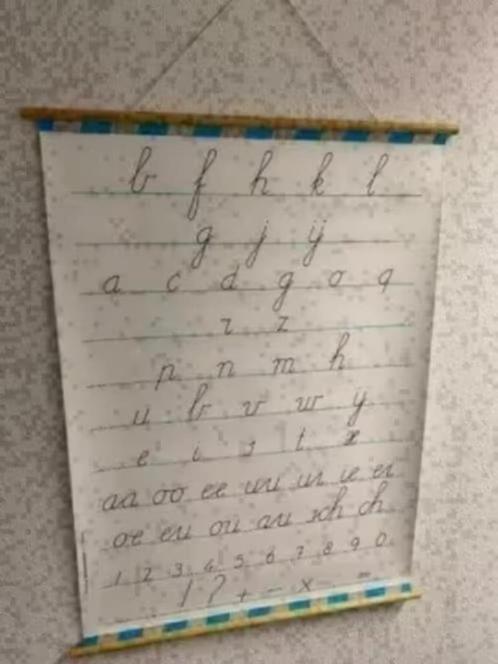 b f h k l
g j ij
a c d g o q
r z
p n m h
u b v w y
e i s t x
aa oo ee uu ui ie ei
oe eu ou au sch ch
1 2 3 4 5 6 7 8 9 0
! ? + - x =